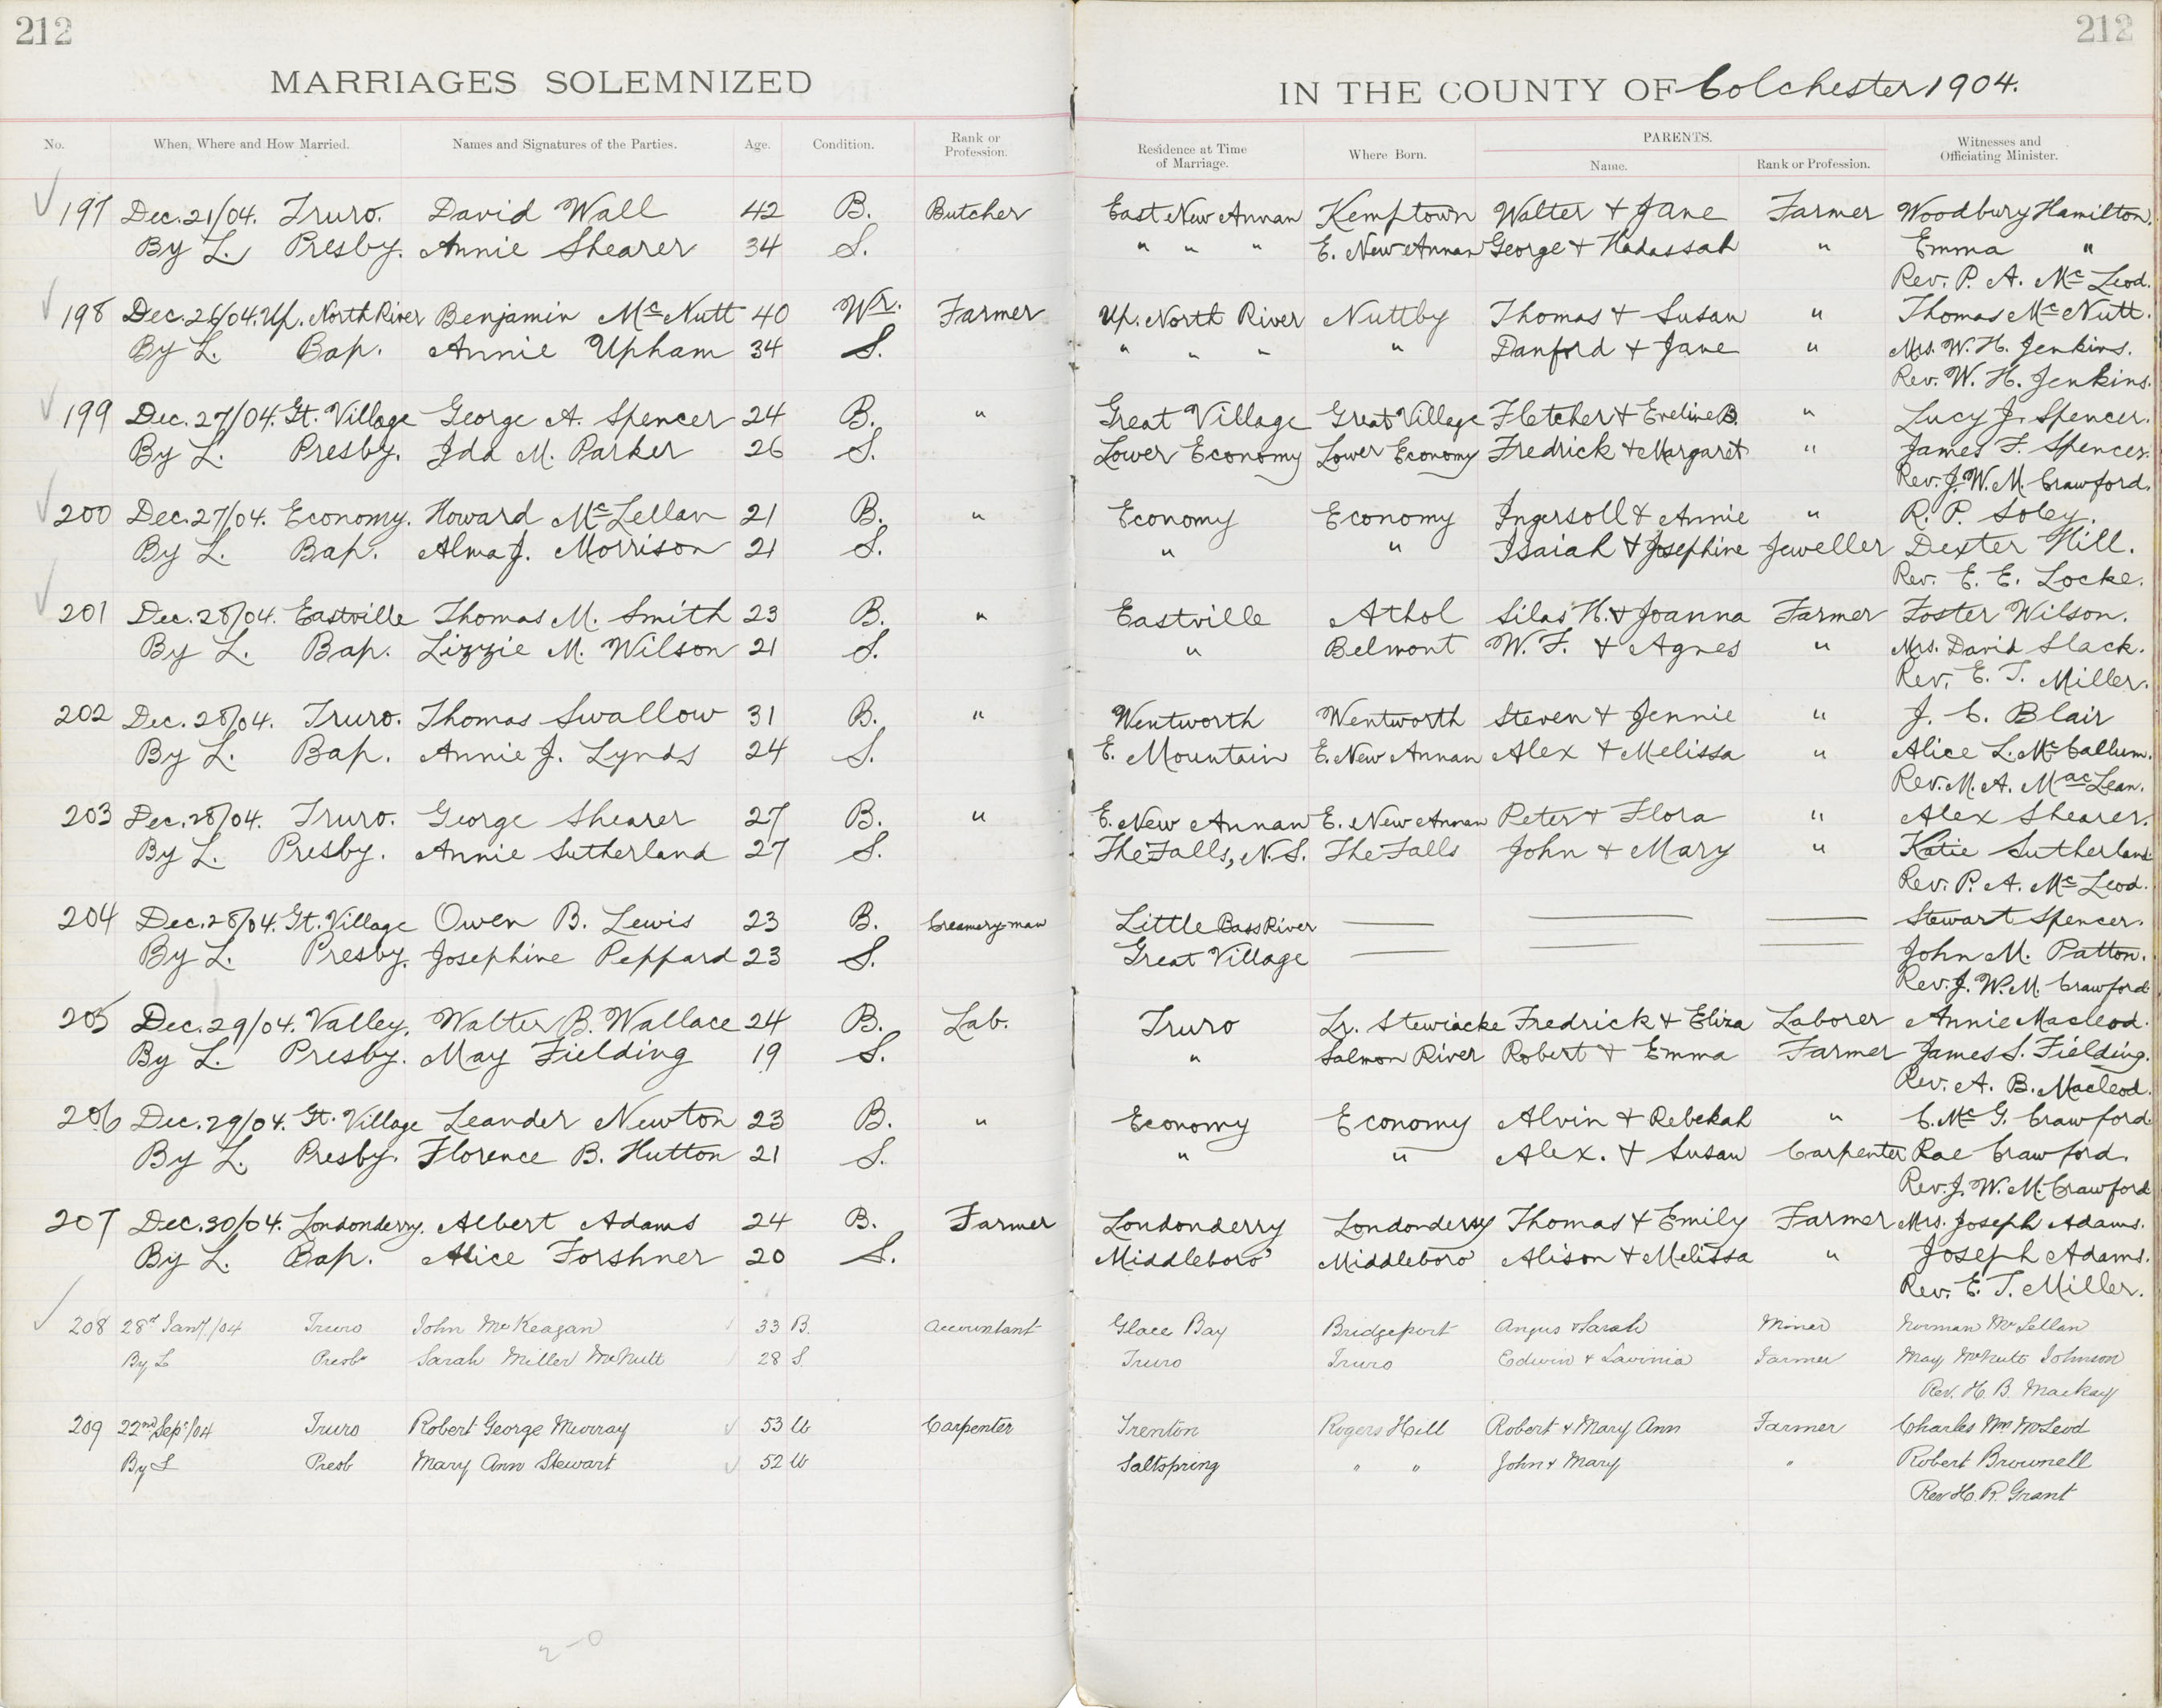 212 212
MARRIAGES SOLEMNIZED IN THE COUNTY OF Colchester 1904.
No. When, Where and How Married. Names and Signatures of the Parties. Age. Condition. Rank or Profession. Residence at Time of Marriage. Where Born. PARENTS. Name. Rank or Profession. Witnesses and Officiating Minister.
197 Dec. 21/04. Truro. David Wall 42 B. Butcher East New Annan Kemptown Walter + Jane Farmer Woodbury Hamilton.
By L. Presby. Annie Shearer 34 S. " " " E. New Annan George + Hadassah " Emma "
Rev. P. A. McLeod.
198 Dec. 26/04. Up. North River Benjamin McNutt 40 Wr. Farmer Up. North River Nuttby Thomas + Susan " Thomas McNutt.
By L. Bap. Annie Upham 34 S. " " " " Danford + Jane " Mrs. W. H. Jenkins.
Rev. W. H. Jenkins.
199 Dec. 27/04. Gt. Village George A. Spencer 24 B. " Great Village Great Village Fletcher + Eveline B. " Lucy J. Spencer.
By L. Presby. Ida M. Parker 26 S. Lower Economy Lower Economy Fredrick + Margaret " James F. Spencer.
Rev. J. W. M. Crawford.
200 Dec. 27/04. Economy. Howard McLellan 21 B. " Economy Economy Ingersoll + Annie " R. P. Soley.
By L. Bap. Alma J. Morrison 21 S. " " Isaiah + Josephine Jeweller Dexter Hill.
Rev. E. E. Locke.
201 Dec. 28/04. Eastville Thomas M. Smith 23 B. " Eastville Athol Silas H. + Joanna Farmer Foster Wilson.
By L. Bap. Lizzie M. Wilson 21 S. " Belmont W. F. + Agnes " Mrs. David Slack.
Rev. E. T. Miller.
202 Dec. 28/04. Truro. Thomas Swallow 31 B. " Wentworth Wentworth Steven + Jennie " J. C. Blair
By L. Bap. Annie J. Lynds 24 S. E. Mountain E. New Annan Alex + Melissa " Alice L. McCallum.
Rev. M. A. MacLean.
203 Dec. 28/04. Truro. George Shearer 27 B. " E. New Annan E. New Annan Peter + Flora " Alex Shearer.
By L. Presby. Annie Sutherland 27 S. The Falls, N.S. The Falls John + Mary " Katie Sutherland
Rev. P. A. McLeod.
204 Dec. 28/04. Gt. Village Owen B. Lewis 23 B. Creamery-man Little Bass River Stewart Spencer.
By L. Presby. Josephine Peppard 23 S. Great Village John M. Patton.
Rev. J. W. M. Crawford
205 Dec. 29/04. Valley. Walter B. Wallace 24 B. Lab. Truro Lr. Stewiacke Fredrick + Eliza Laborer Annie Macleod.
By L. Presby. May Fielding 19 S. " Salmon River Robert + Emma Farmer James S. Fielding.
Rev. A. B. Macleod.
206 Dec. 29/04. Gt. Village Leander Newton 23 B. " Economy Economy Alvin + Rebekah " C. McG. Crawford
By L. Presby. Florence B. Hutton 21 S. " " Alex. + Susan Carpenter Rae Crawford.
Rev. J. W. M. Crawford
207 Dec. 30/04. Londonderry. Albert Adams 24 B. Farmer Londonderry Londonderry Thomas + Emily Farmer Mrs. Joseph Adams.
By L. Bap. Alice Forshner 20 S. Middleboro' Middleboro' Alison + Melissa " Joseph Adams.
Rev. E. T. Miller.
208 28th Jany/04 Truro John McKeagan 33 B. Accountant Glace Bay Bridgeport Angus + Sarah Miner Norman McLellan
By L Presbn Sarah Miller McNutt 28 S. Truro Truro Edwin + Lavinia Farmer May McNutt Johnson
Rev. H. B. Mackay
209 22nd Sept/04 Truro Robert George Murray 53 W Carpenter Trenton Rogers Hill Robert + Mary Ann Farmer Charles Wm McLeod
By L Presb Mary Ann Stewart 52 W Saltspring " " John + Mary " Robert Brownell
Rev H. R. Grant
2-0